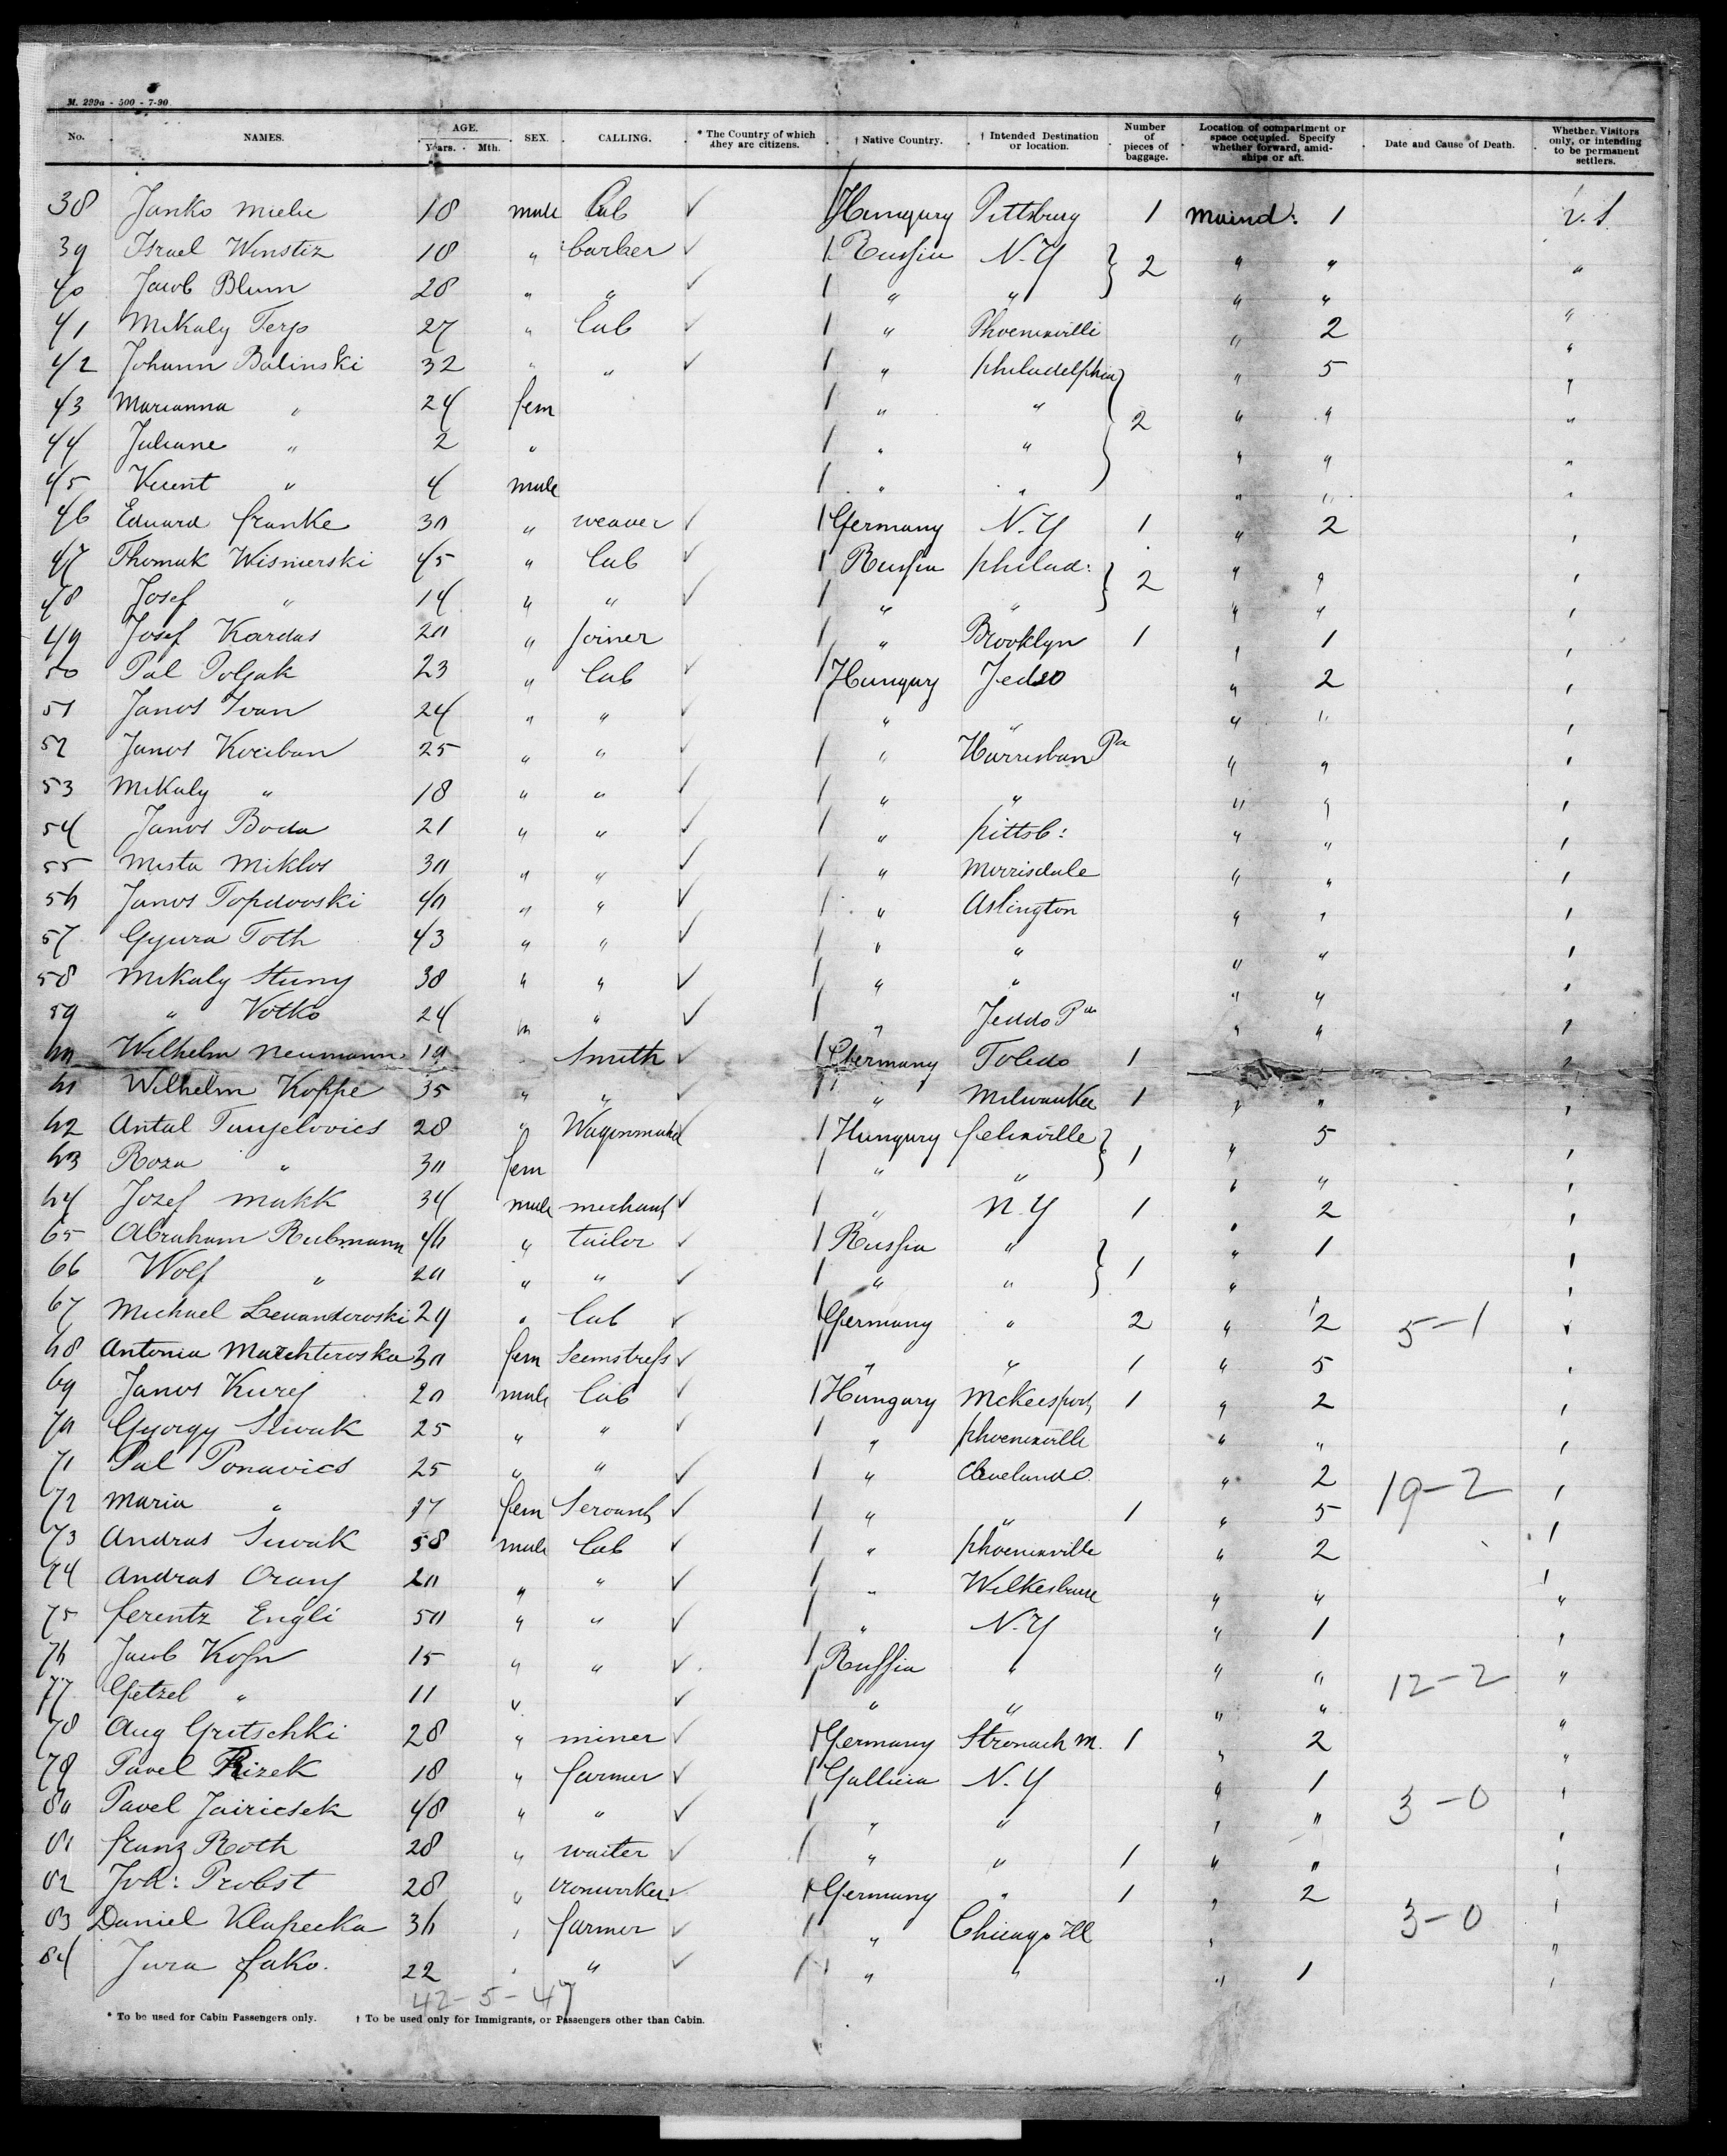 M. 299a - 500 - 7-90
No. NAMES. AGE. Years. Mth. SEX. CALLING. * The Country of which they are citizens. † Native Country. † Intended Destination or location. Number of pieces of baggage. Location of compartment or space occupied. Specify whether forward, amidships or aft. Date and Cause of Death. Whether Visitors only, or intending to be permanent settlers.
38 Janko Miele 18 male Lab ✓ Hungary Pittsburg 1 maind: 1
39 Israel Winstiz 18 " barber ✓ Russia N.Y } 2 " " "
40 Jacob Blum 28 " " ✓ " " " " "
41 Mikaly Terjo 27 " Lab ✓ " Phoenixville " 2 "
42 Johann Balinski 32 " " ✓ " philadelphia " 5 "
43 Marianna " 24 fem " " } 2 " " "
44 Juliane " 2 " " " " " "
45 " 4 male " " " " "
46 Eduard Franke 30 " weaver ✓ Germany N.Y 1 " 2 "
47 Thomak Wisnierski 45 " Lab ✓ Russia philad: } 2 " " "
48 Josef " 14 " " ✓ " " " " "
49 Josef Kardas 20 " joiner " Brooklyn 1 " 1 "
50 Pal Poljak 23 " Lab ✓ Hungary Jeddo " 2 "
51 Janos Ivan 24 " " ✓ " " " " "
52 Janos Koriban 25 " " ✓ " Harrisban Pa " " "
53 Mikaly " 18 " " ✓ " " " " "
54 Janos Boda 21 " " ✓ " pittsb: " " "
55 Mista Miklos 30 " " ✓ " Morrisdale " " "
56 Janos Topdovski 40 " " ✓ " Aslington " " "
57 Gyura Toth 43 " " ✓ " " " " "
58 Mikaly Stuny 38 " " ✓ " " " " "
59 " Votko 24 " " ✓ " Jeddo Pa " " "
60 Wilhelm Neumann 19 Smith ✓ Germany Toledo 1
61 Wilhelm Koppe 35 " " ✓ " Milwaukee 1 " " "
62 Antal 28 " Wagonmaker ✓ Hungary felixville } 1 " 5 "
63 Roza " 30 fem " " " " "
64 Jozef Makk 34 male merchant ✓ " N.Y 1 " 2 "
65 Abraham Rubmann 46 " tailor ✓ Russia " } 1 " 1 "
66 Wolf " 20 " " ✓ " " " "
67 Michael Lewandowski 29 " Lab ✓ Germany " 2 " 2 5-1 "
68 Antonia Marchteroska 30 fem Seemstress ✓ " " 1 " 5 "
69 Janos Kurej 20 male Lab ✓ Hungary McKeesport 1 " 2 "
70 Gyorgy Siwak 25 " " ✓ " phoenixville " " "
71 Pal Ponavics 25 " " ✓ " Cleveland O. " 2 19-2 "
72 Maria " 27 fem Servant ✓ " " 1 " 5 "
73 Andras Siwak 38 male Lab ✓ " phoenixville " 2 "
74 Andras Orany 20 " " ✓ " Wilkesbare " " "
75 ferentz Engli 50 " " ✓ " N.Y " 1 "
76 Jacob Kohn 15 " " ✓ Russia " " " 12-2 "
77 Getzel " 11 " ✓ " " " " "
78 Aug Gritschki 28 " miner ✓ Germany Stronach M. 1 " 2 "
79 Pavel Rizek 18 " farmer ✓ Gallicia N.Y " 1 "
80 Pavel Jairicsek 48 " " ✓ " " " " 3-0 "
81 franz Roth 28 " waiter ✓ " " 1 " " "
82 Joh: Probst 28 " ironworker ✓ Germany " 1 " 2 "
83 Daniel Klapecka 36 " farmer ✓ " Chicago Ill " 3-0 "
84 Jura fako. 22 " " ✓ " " " 1 "
42-5-47
* To be used for Cabin Passengers only. † To be used only for Immigrants, or Passengers other than Cabin.